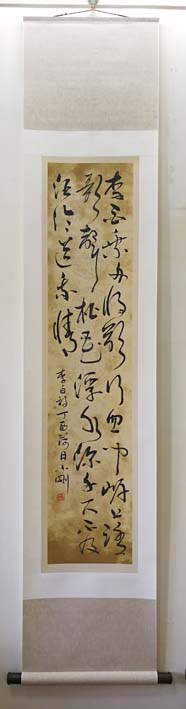 李白乘舟將欲行忽聞岸上踏
歌聲桃花潭水深千尺不及
汪倫送我情
李白詩丁酉荷月小剛